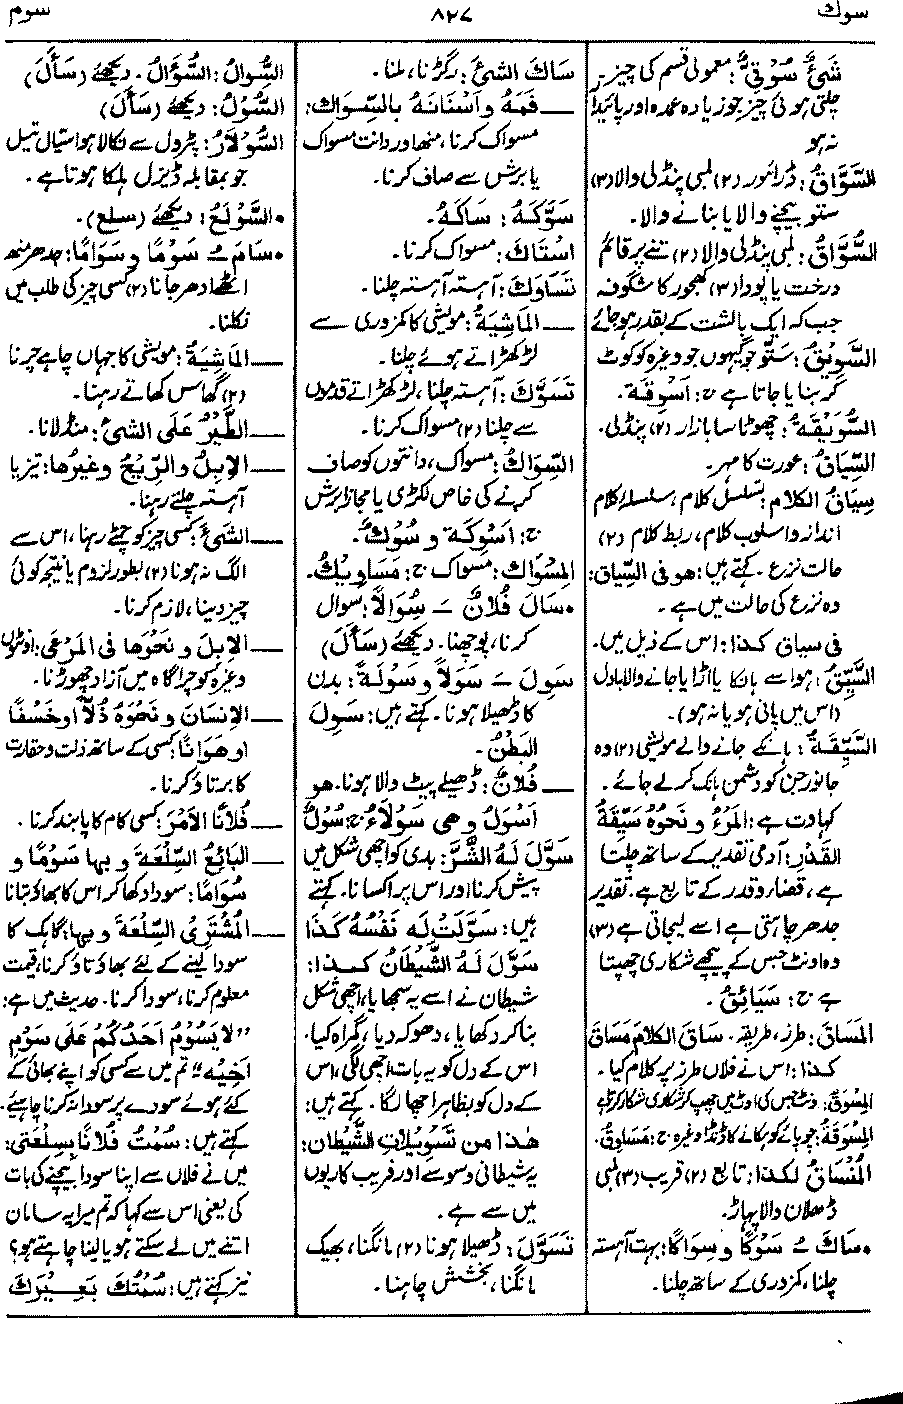 سوك
۸۲۷
سوم
شَیْءٌ سُوْقِیٌّ: معمولی قسم کی چیز، ہر
چلتی ہوئی چیز جو زیادہ عمدہ اور پائیدار
نہ ہو
السَّوَّاقُ: ڈرائور (۲) لمبی پنڈلی والا (۳)
ستو بیچنے والا یا بنانے والا۔
السُّوَّاقُ: لمبی پنڈلی والا (۲) تنے پر قائم
درخت یا پودا (۳) کھجور کا شگوفہ
جب کہ ایک بالشت کے بقدر ہو جائے
السَّوِیْقُ: ستّو جو گیہوں جو وغیرہ کو کوٹ
کر بنایا جاتا ہے ج: اَسْوِقَة۔
السُّوَیْقَةُ: چھوٹا سا بازار (۲) پنڈلی۔
السِّیَاقُ: عورت کا مہر۔
سِیَاقُ الکلامِ: تسلسل کلام، سلسلۂ کلام
انداز و اسلوب کلام، ربط کلام (۲)
حالت نزع۔ کہتے ہیں: هو فی السِّیاق:
وہ نزع کی حالت میں ہے۔
فی سیاق کذا: اس کے ذیل میں۔
السَّیِّقُ: ہوا سے ہانکا یا اڑایا جانے والا بادل
(اس میں پانی ہو یا نہ ہو)۔
السَّیِّقَةُ: ہانکے جانے والے مویشی (۲) وہ
جانور جن کو دشمن ہانک کر لے جائے۔
کہاوت ہے: المَرْءُ و نَحْوُهُ سَیِّقَةُ
القَدَرِ: آدمی تقدیر کے ساتھ چلتا
ہے، قضا و قدر کے تابع ہے۔ تقدیر
جدھر چاہتی ہے اسے لیجاتی ہے (۳)
وہ اونٹ جس کے پیچھے شکاری چھپتا
ہے ج: سَیَائِقُ۔
المَسَاقُ: طرز، طریقہ۔ ساقَ الکلامَ مَسَاقَ
کذا: اس نے فلاں طرز پر کلام کیا۔
المِسْوَقُ: اونٹ جس کی اوٹ میں چھپ کر شکاری شکار کرتا ہے
المِسْوَقَةُ: چوپائے کو ہانکنے کا ڈنڈا وغیرہ ج: مَسَاوِقُ۔
المُنْسَاقُ لکذا: تابع (۲) قریب (۳) لمبی
ڈھلان والا پہاڑ۔
• سَاكَ ـُ سَوْكًا وسِوَاكًا: بہت آہستہ
چلنا، کمزوری کے ساتھ چلنا۔
سَاكَ الشیءَ: رگڑنا، ملنا۔
— فَمَهُ و اَسْنَانَهُ بِالسِّوَاكِ:
مسواک کرنا، منھ اور دانت مسواک
یا برش سے صاف کرنا۔
سَوَّكَهُ: سَاكَهُ۔
اسْتَاكَ: مسواک کرنا۔
تَسَاوَكَ: آہستہ آہستہ چلنا۔
— المَاشِیَةُ: مویشی کا کمزوری سے
لڑکھڑاتے ہوئے چلنا۔
تَسَوَّكَ: آہستہ چلنا، لڑکھڑاتے قدموں
سے چلنا (۲) مسواک کرنا۔
السِّوَاكُ: مسواک، دانتوں کو صاف
کرنے کی خاص لکڑی یا مجازا برش
ج: اَسْوِكَة و سُوُكٌ۔
المِسْوَاكُ: مسواک ج: مَسَاوِیْكُ۔
• سَالَ فُلَانٌ ـَ سُوَالًا: سوال
کرنا، پوچھنا۔ دیکھئے (سَأَلَ)
سَوِلَ ـَ سَوَلًا و سُولَةً: بدن
کا ڈھیلا ہونا۔ کہتے ہیں: سَوِلَ
البَطْنُ۔
— فُلَانٌ: ڈھیلے پیٹ والا ہونا۔ هو
اَسْوَلُ و هی سَوْلَاءُ ج: سُوْلٌ
سَوَّلَ لَهُ الشَّرَّ: بدی کو اچھی شکل میں
پیش کرنا اور اس پر اکسانا۔ کہتے
ہیں: سَوَّلَتْ لَهٗ نَفْسُهٗ كَذَا
سَوَّلَ لَهُ الشَّيْطَانُ كَذَا:
شیطان نے اسے یہ سمجھایا، اچھی شکل
بنا کر دکھایا، دھوکہ دیا، گمراہ کیا۔
اس کے دل کو یہ بات اچھی لگی، اس
کے دل کو بظاہر اچھا لگا۔ کہتے ہیں:
هٰذا من تَسْوِیْلَاتِ الشَّیْطَان:
یہ شیطانی وسوسے اور فریب کاریوں
میں سے ہے۔
تَسَوَّلَ: ڈھیلا ہونا (۲) مانگنا، بھیک
مانگنا، بخشش چاہنا۔
السُّوالُ: السُّؤَالُ۔ دیکھئے (سَأَلَ)
السُّوْلُ: دیکھئے (سَأَلَ)
السُّوْلَارُ: پٹرول سے نکالا ہوا سیال تیل
جو بمقابلہ ڈیزل ہلکا ہوتا ہے۔
• السَّوْلَعُ: دیکھئے (سلع)۔
• سَامَ ـُ سَوْمًا و سَوَامًا: جدھر منھ
اٹھے ادھر جانا (۲) کسی چیز کی طلب میں
نکلنا۔
— المَاشِیَةُ: مویشی کا جہاں چاہے چرنا
(۲) گھاس کھاتے رہنا۔
— الطَّیْرُ عَلَی الشَّیْءِ: منڈلانا۔
— الإِبِلُ والرِّیْحُ وغیرُها: تیز یا
آہستہ چلتے رہنا۔
— الشَّیْءَ: کسی چیز کو چمٹے رہنا، اس سے
الگ نہ ہونا (۲) بطور لزوم یا نتیجہ کوئی
چیز دینا، لازم کرنا۔
— الإِبِلَ و نَحْوَها فی المَرْعَی: اونٹوں
وغیرہ کو چراگاہ میں آزاد چھوڑنا۔
— الإِنْسَانَ و نَحْوَهُ ذُلًّا اَو خَسْفًا
او هَوَانًا: کسی کے ساتھ ذلت و حقارت
کا برتاؤ کرنا۔
— فُلَانًا الأَمْرَ: کسی کام کا پابند کرنا۔
— البَائِعُ السِّلْعَةَ و بِها سَوْمًا و
سُوَامًا: سودا دکھا کر اس کا بھاؤ بتانا
— المُشْتَرِی السِّلْعَةَ و بِها: گاہک کا
سودا لینے کے لئے بھاؤ تاؤ کرنا، قیمت
معلوم کرنا، سودا کرنا۔ حدیث میں ہے:
”لا یَسُوْمُ اَحَدُكُمْ عَلَی سَوْمِ
اَخِیْهِ“ تم میں سے کسی کو اپنے بھائی کے
کئے ہوئے سودے پر سودا نہ کرنا چاہئے۔
کہتے ہیں: سُمْتُ فُلَانًا سِلْعَتِی:
میں نے فلاں سے اپنا سودا بیچنے کی بات
کی یعنی اس سے کہا کہ تم میرا یہ سامان
اتنے میں لے سکتے ہو یا لینا چاہتے ہو؟
نیز کہتے ہیں: سُمْتُكَ بَعِیْرَكَ